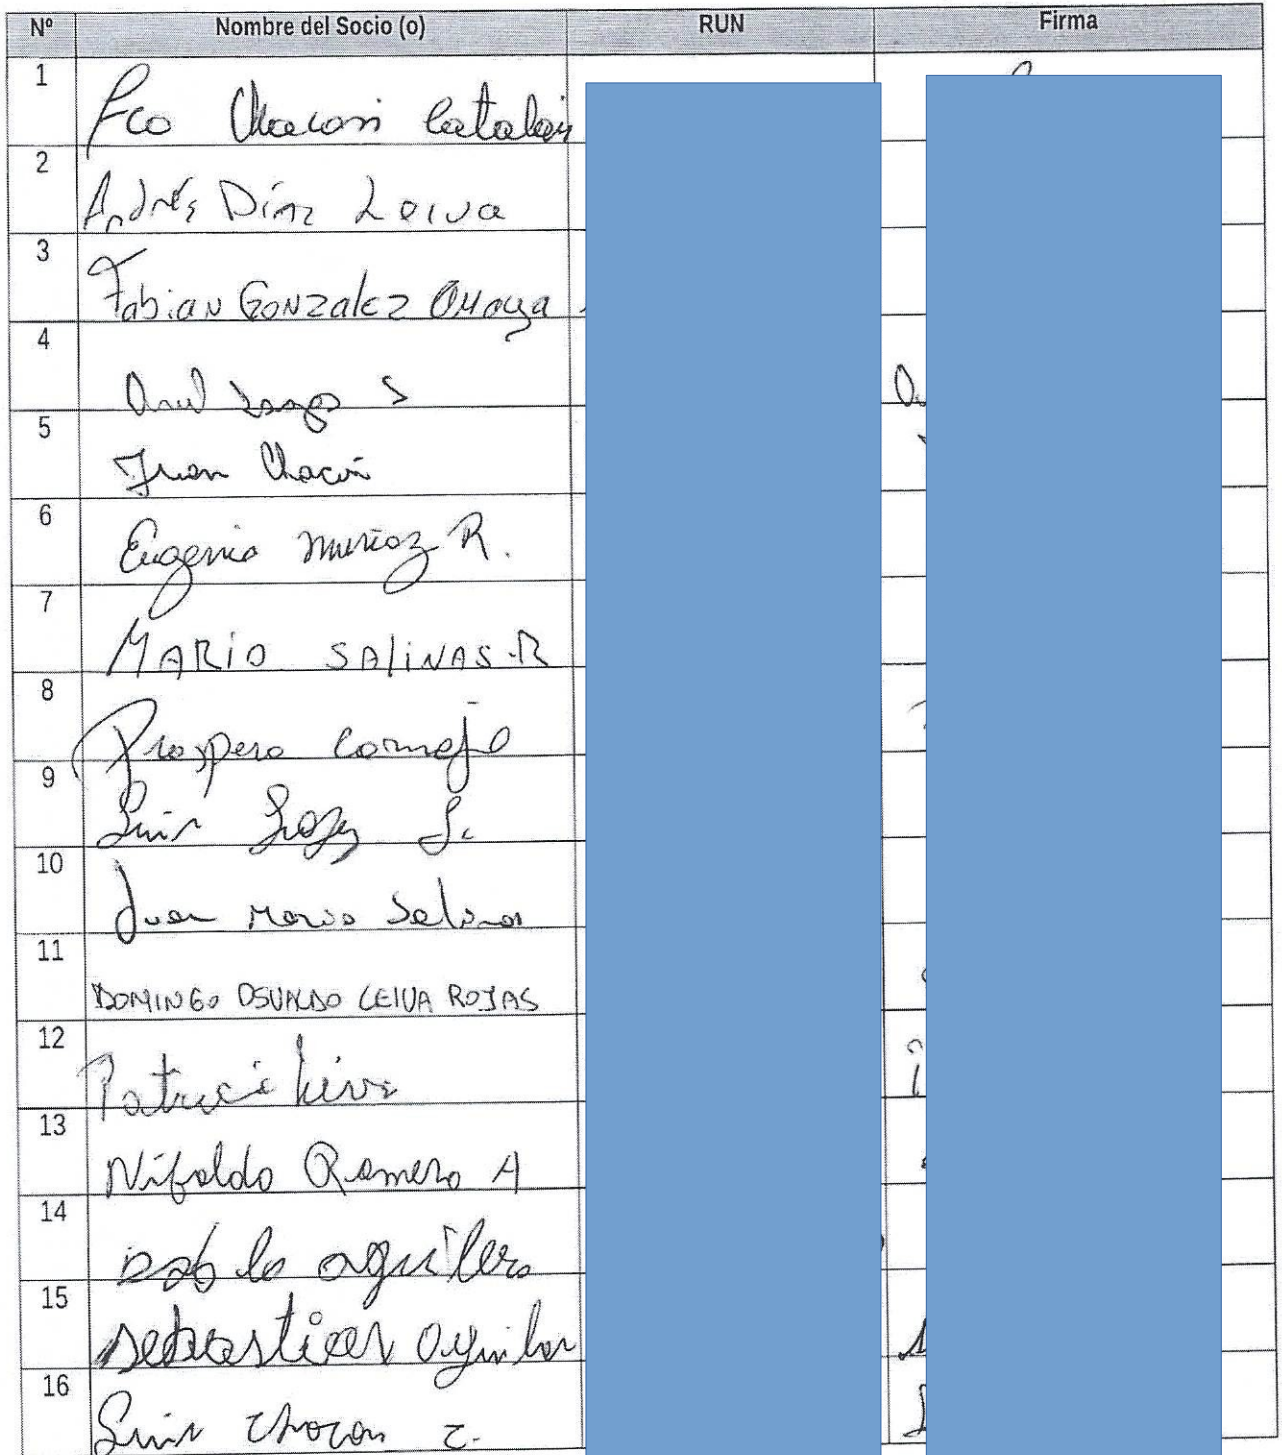 Nº Nombre del Socio (o) RUN Firma
1 Fco Chacon Catalán
2 Andrés Díaz Leiva
3 Fabian Gonzalez Omaya
4 S
5 Juan Chacón
6 Eugenio Muñoz R.
7 MARIO SALINAS R
8 Prospero Cornejo
9 Luis Lopez L.
10 Juan Mario Salinas
11 DOMINGO OSVALDO LEIVA ROJAS
12 Patricia Leiva
13 Nibaldo Romero A
14 Pablo aguilera
15 sebastian aguilar
16 Luis Chacon C.